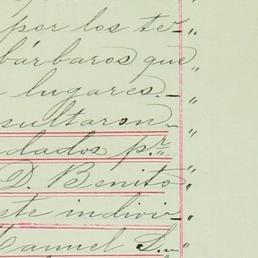 por los te-"
bárbaros que "
lugares.- "
sultaron- "
dados pr. "
D. Benito "
ste indivi- "
anuel S. "